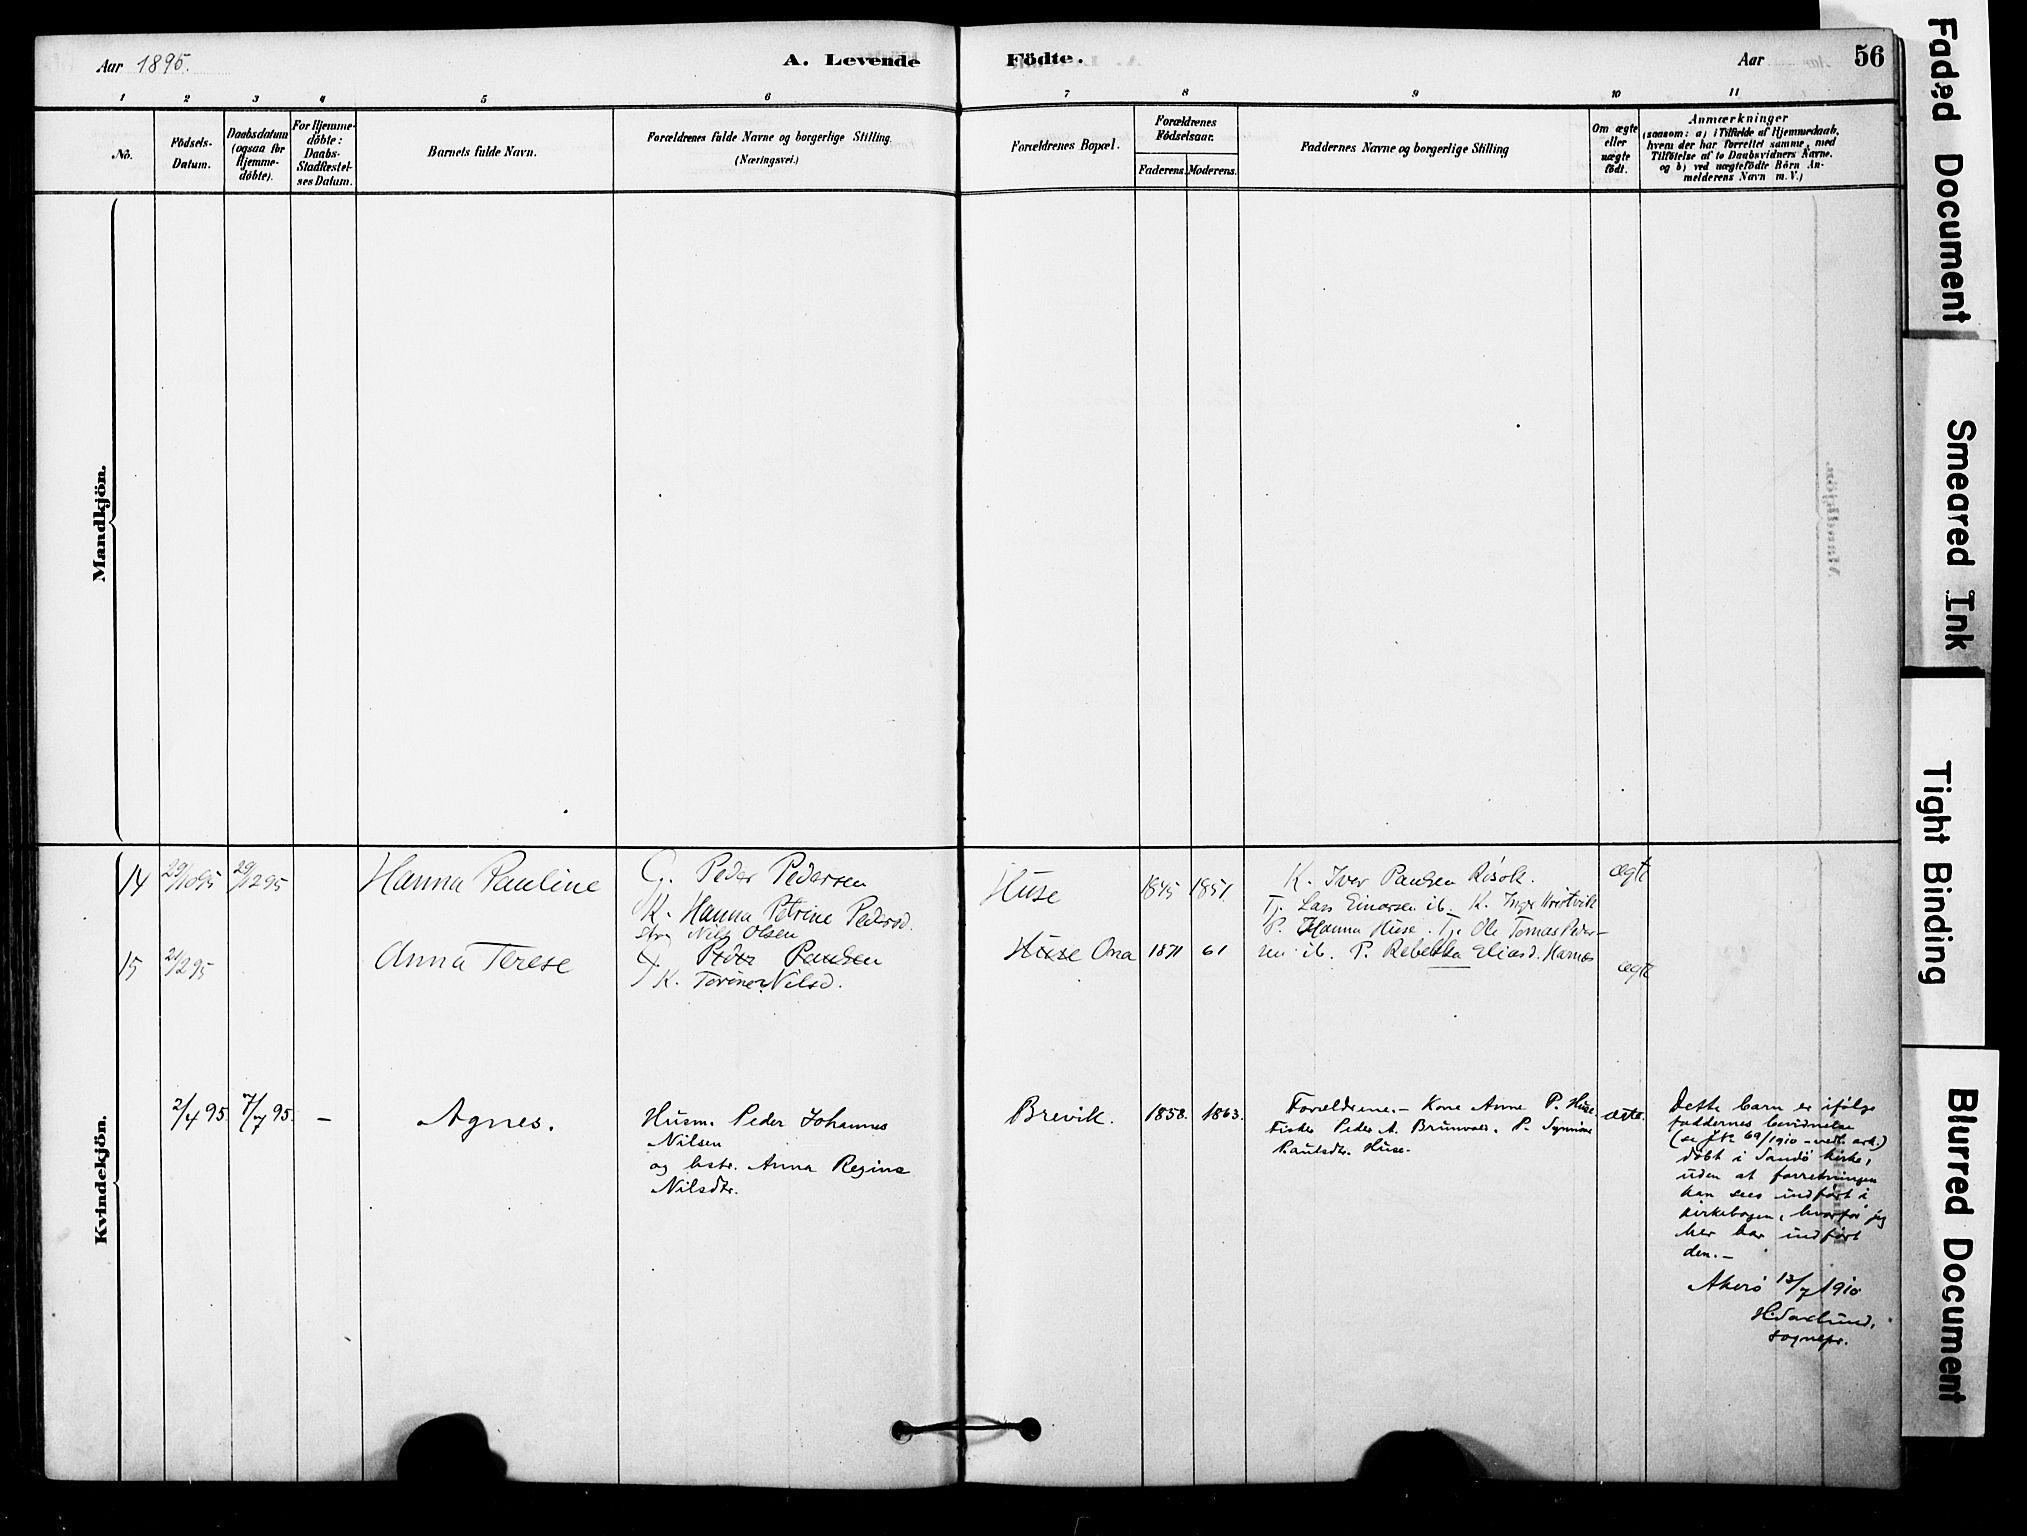 Aar 1895.
A. Levende
Födte.
Aar
56
1 2 3 4 5 6 7 8 9 10 11
No.
Födsels-
Datum.
Daabsdatum
(ogsaa for
Hjemme-
döbte).
For Hjemme-
döbte:
Daabs-
Stadfæstel-
ses Datum.
Barnets fulde Navn.
Forældrenes fulde Navne og borgerlige Stilling
(Næringsvei.)
Forældrenes Bopæl.
Forældrenes
Födselsaar.
Faderens. Moderens.
Faddernes Navne og borgerlige Stilling
Om ægte
eller
uægte
födt.
Anmærkninger
(saasom: a) i Tilfælde af Hjemmedaab,
hvem der har forrettet samme, med
Tilföielse af to Daabsvidners Navne.
og b) ved uægtefödte Börn An-
melderens Navn m. V.)
Mandkjön.
Kvindekjön.
14 29/10 95 29/12 95
Hanna Pauline
G. Peder Pedersen
K. Hanna Petrine Pedersd.
Huse
1845 1851
K. Iver Paulsen Risøk.
Tj. Lars Einarsen ib. K. Inger
P. Hanna Huse. Tj. Ole Tomas Peder-
sen ib. P. Rebekka Eliasd. Harnes
ægte
15 21/2 95
Anna Terese
Nils Olsen
G. Peder Paulsen
K. Nilsd.
Huse Ona
1871 61
ægte
2/4 95. 7/7 95. –
Agnes.
Husm. Peder Johannes
Nilsen
og hstr. Anna Regine
Nilsdtr.
Brevik.
1858. 1863.
Forældrene. – Kone Anne P. Huse.
Fisker Peder A. Brunvold. P. Synnöve
Paulsdtr. Huse.
ægte.
Dette barn er ifölge
faddernes bevidnelse
(se J.№ 69/1910 – vedl. ark.)
döbt i Sandö kirke,
uden at forretningen
kan sees indfört i
kirkebogen, hvorfor jeg
her har indfört
den. –
Akerö 13/7 1910
H. Saxlund,
sognepr.
Faded Document
Smeared Ink
Tight Binding
Blurred Document